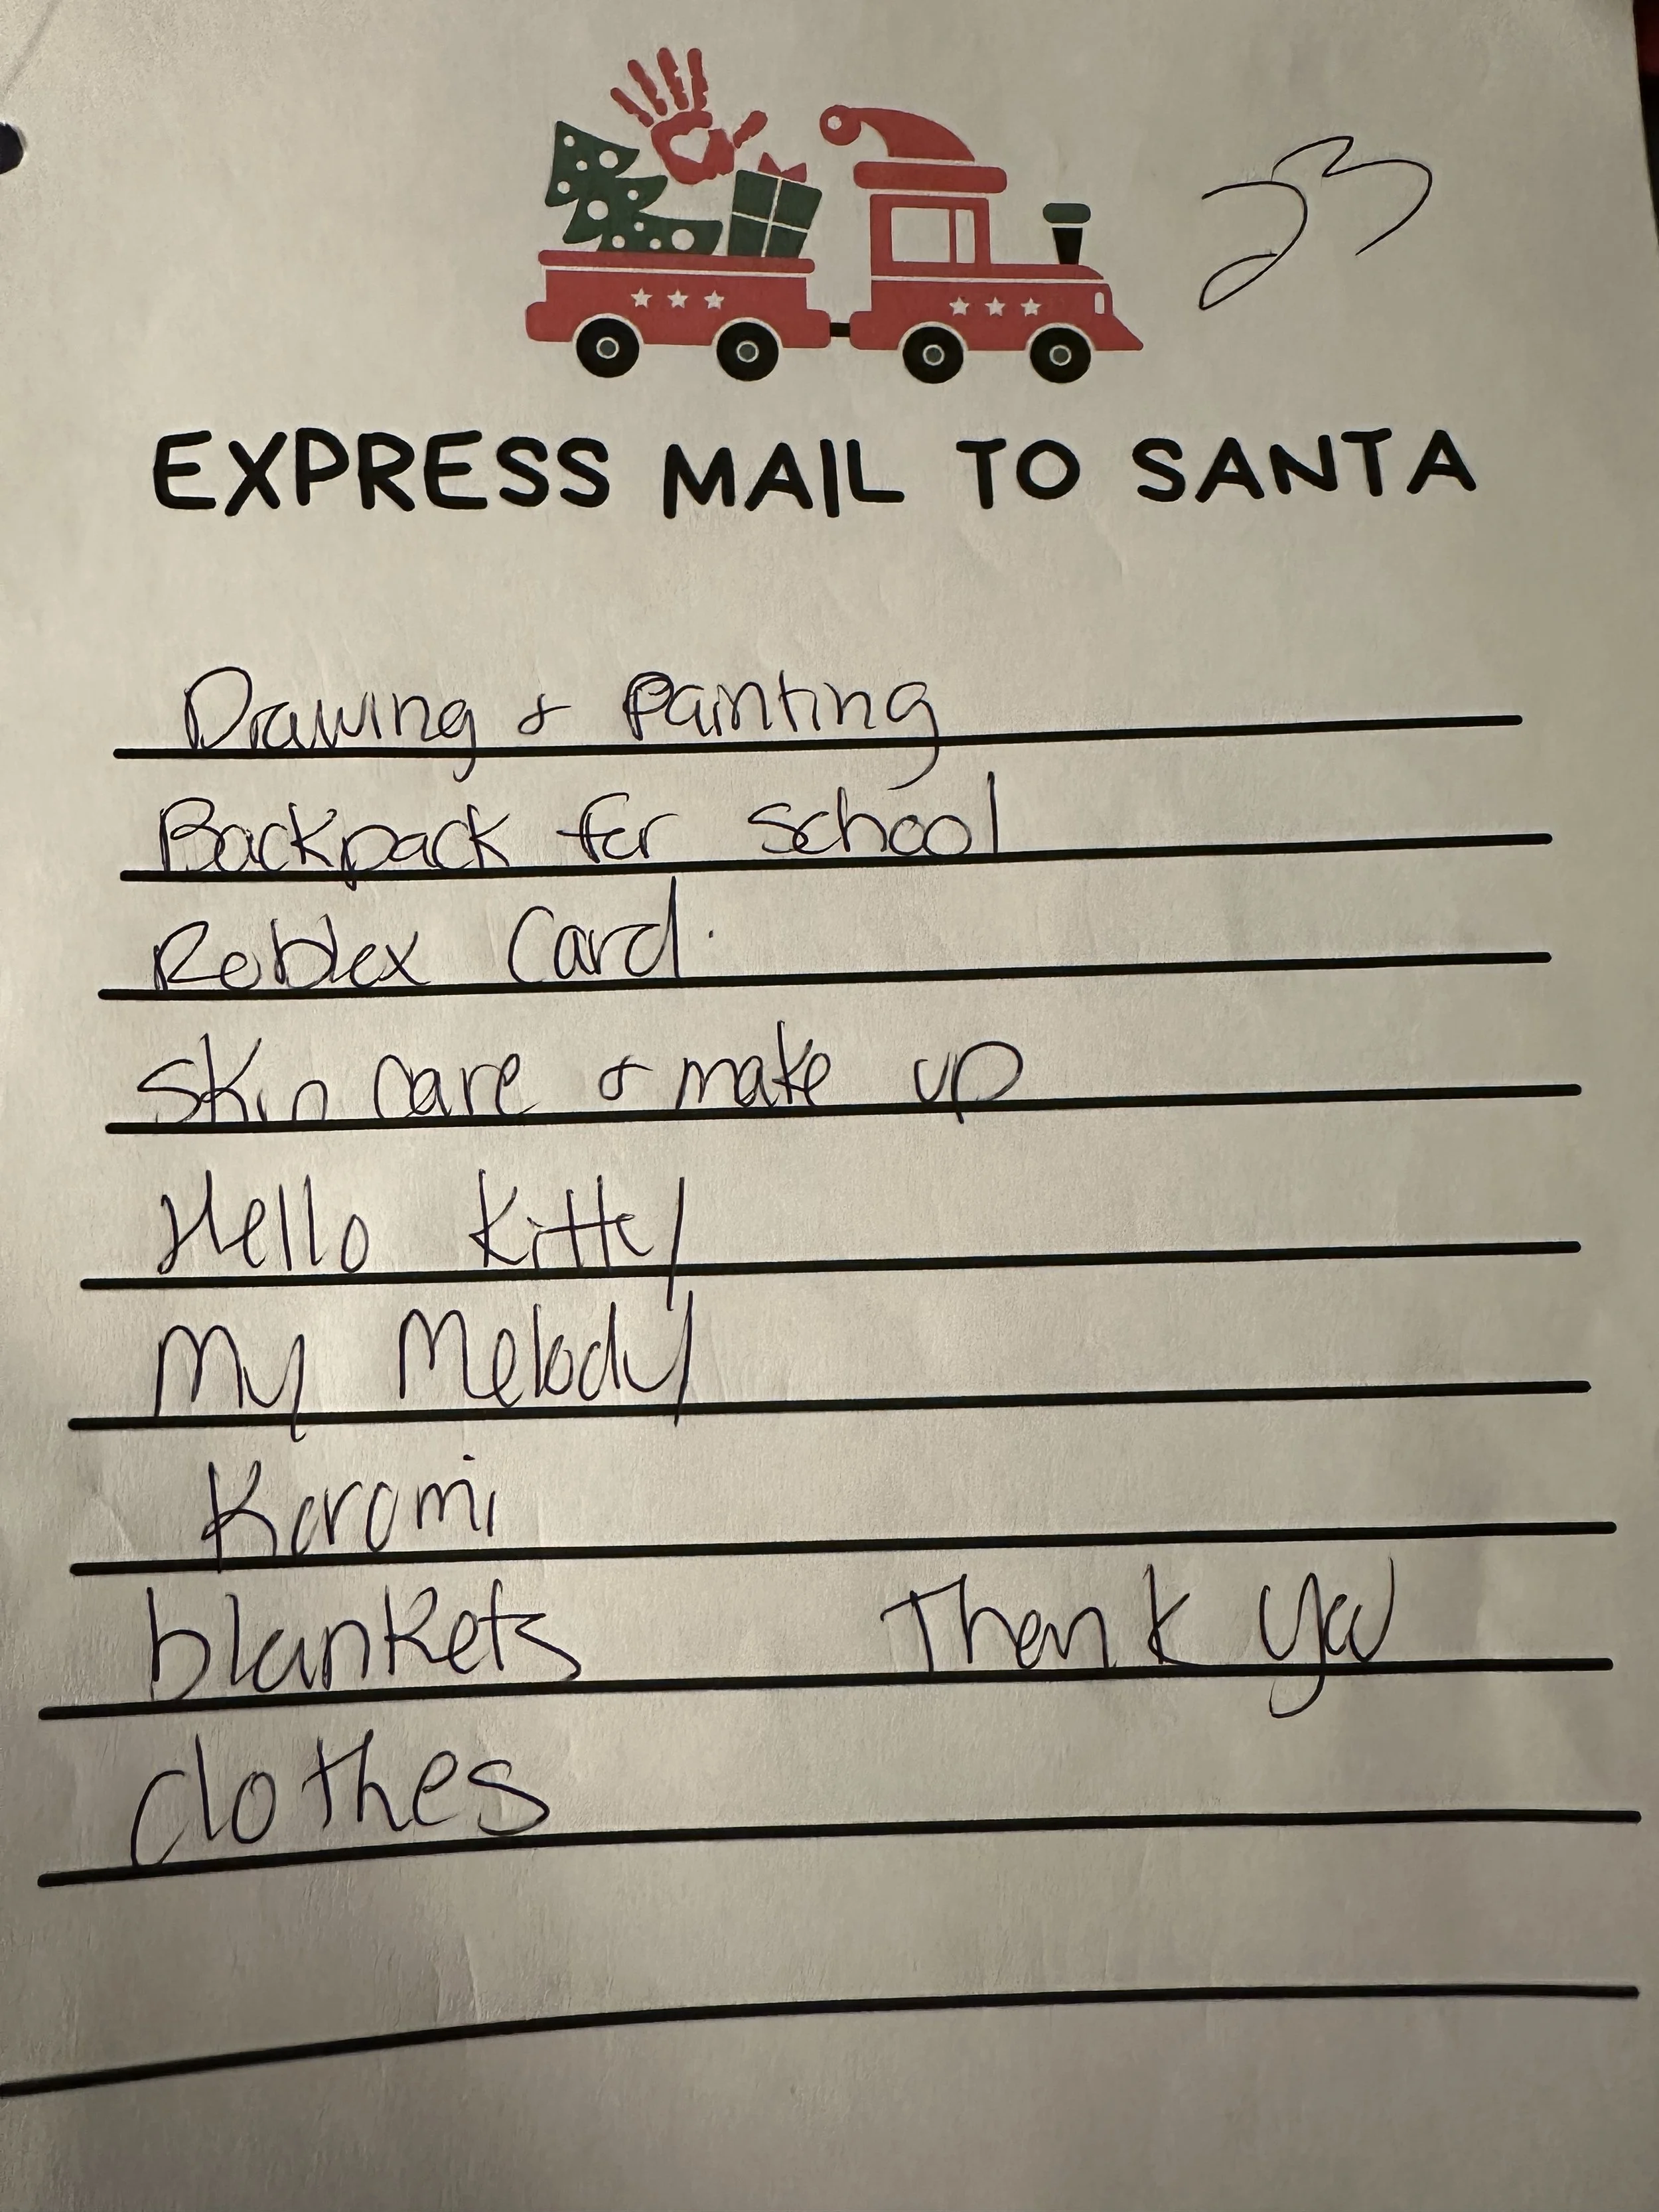 23
EXPRESS MAIL TO SANTA
Drawing & Painting
Backpack for School
Roblex Card.
Skin care & make up
Hello Kitty
My Melody
Koromi
blankets Thank you
clothes